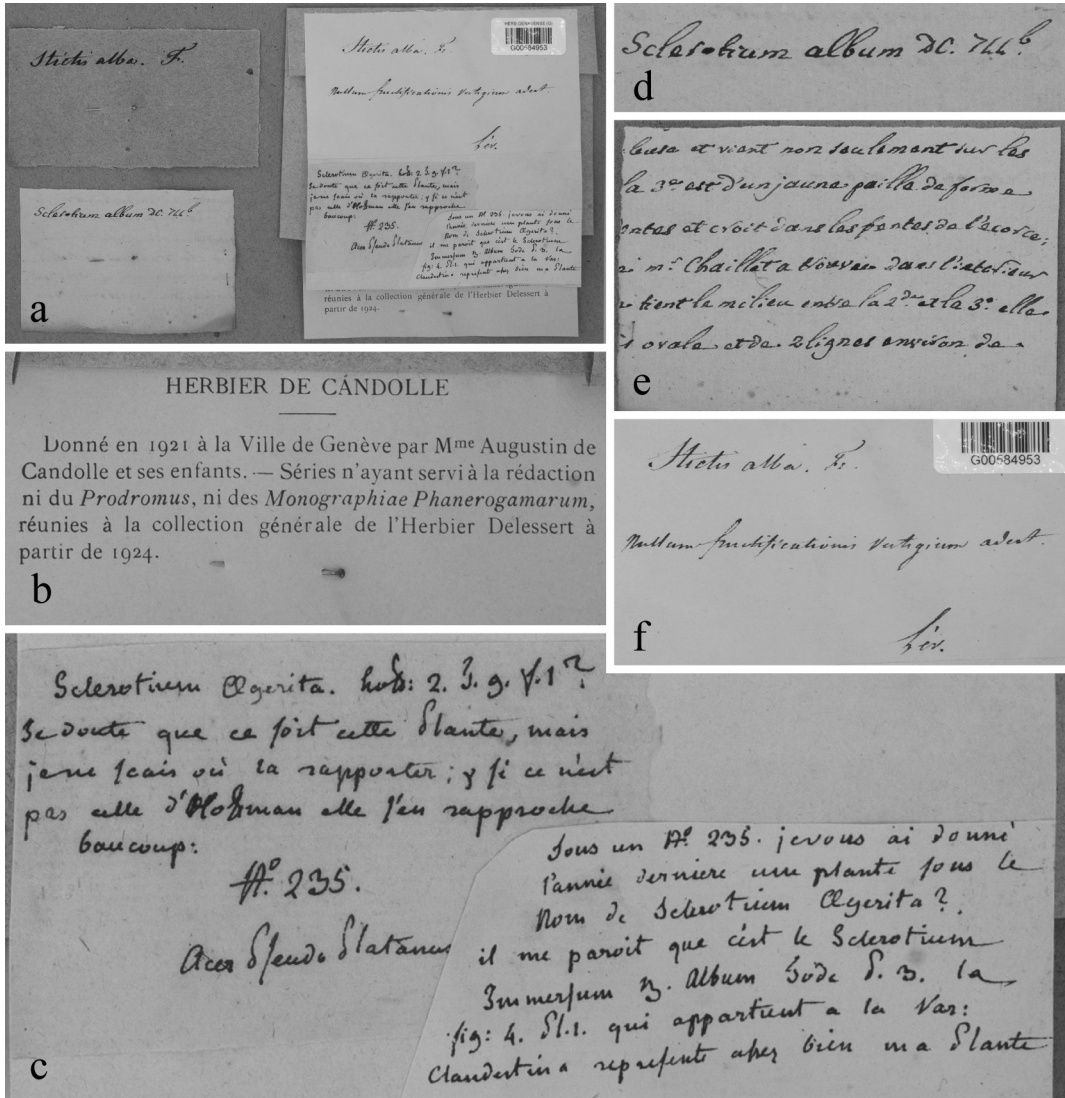 Stictis alba. F.
Sclerotium album DC. 744b
a
HERB. GENAVENSE (G)
G00584953
Stictis alba. Fr.
Nullum fructificationis vestigium adest.
Lév.
Sclerotium Ægerita. hofs: 2. T. 9. f. 1?
Je doute que ce soit cette plante, mais
je ne scais où la rapporter; & si ce n'est
pas celle d'Hofman elle s'en rapproche
baucoup:
N° 235.
Acer Pseudo Platanus
Sous un N° 235. je vous ai donné
l'année derniere une plante sous le
Nom de Sclerotium Ægerita?.
il me paroit que c'est le Sclerotium
Immersum B. Album Tode P. 3. la
fig: 4. Pl. 1. qui appartient a la Var:
Clandestina represente assez bien ma Plante
réunies à la collection générale de l'Herbier Delessert à
partir de 1924.
b
HERBIER DE CANDOLLE
Donné en 1921 à la Ville de Genève par Mme Augustin de
Candolle et ses enfants. — Séries n'ayant servi à la rédaction
ni du Prodromus, ni des Monographiae Phanerogamarum,
réunies à la collection générale de l'Herbier Delessert à
partir de 1924.
c
Sclerotium Ægerita. hofs: 2. T. 9. f. 1?
Je doute que ce soit cette Plante, mais
je ne scais où la rapporter; & si ce n'est
pas celle d'Hofman elle s'en rapproche
baucoup:
N° 235.
Acer Pseudo Platanus
Sous un N° 235. je vous ai donné
l'année derniere une plante sous le
Nom de Sclerotium Ægerita?.
il me paroit que c'est le Sclerotium
Immersum B. Album Tode P. 3. la
fig: 4. Pl. 1. qui appartient a la Var:
Clandestina represente assez bien ma Plante
d
Sclerotium album DC. 744b.
e
et vient non seulement sur les
la 3e est d'un jaune paille de forme
et croit dans les fentes de l'écorce;
mr. Chaillet a trouvée dans l'interieur
tient le milieu entre la 2de et la 3e. elle
ovale et de 2 lignes environ de
f
G00584953
Stictis alba. Fr.
Nullum fructificationis vestigium adest.
Lév.